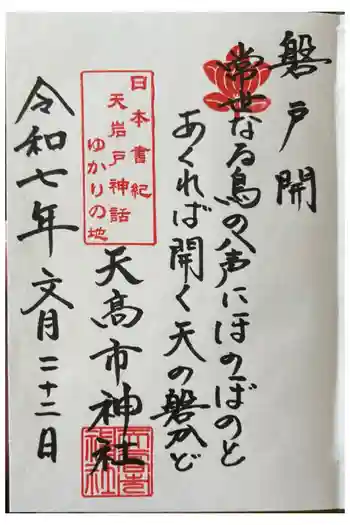 磐戸開
常世なる鳥の声にほのぼのと
あくれば開く天の磐かど
日本書紀
天岩戸神話
ゆかりの地
天高市神社
令和七年文月二十二日